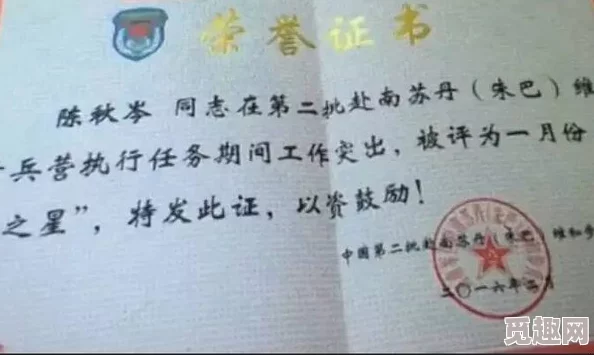 荣誉证书
陈秋岑 同志在第二批赴南苏丹（朱巴）维
兵营执行任务期间工作突出，被评为一月份
之星”，特发此证，以资鼓励！
中国第二批赴南苏丹（朱巴）维和步
二〇一六年二月
觅趣网